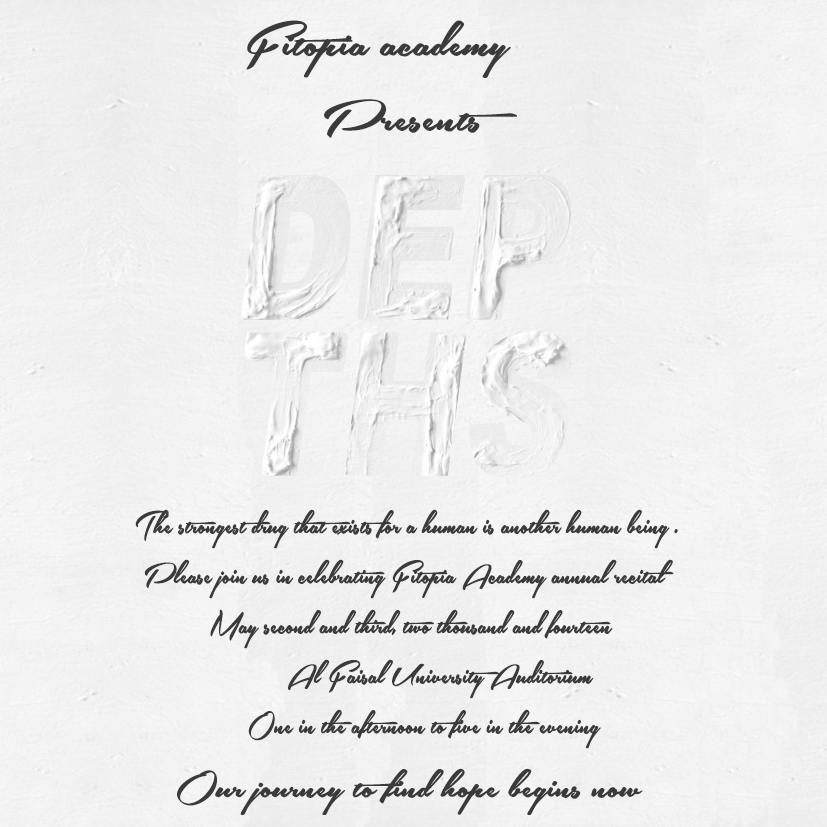 Fitopia academy
Presents
DEP
THS
The strongest drug that exists for a human is another human being .
Please join us in celebrating Fitopia Academy annual recital
May second and third, two thousand and fourteen
Al Faisal University Auditorium
One in the afternoon to five in the evening
Our journey to find hope begins now